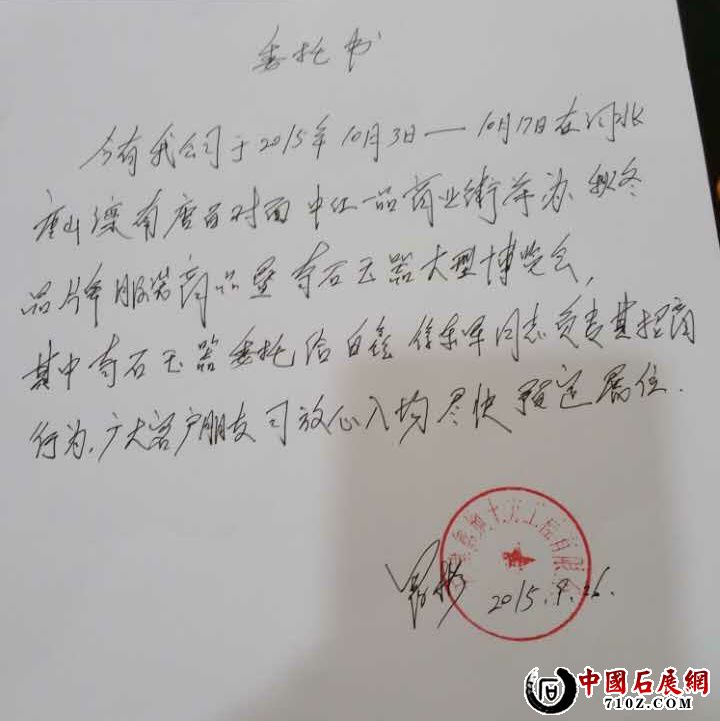 委托书
今有我公司于2015年10月3日—10月17日在河北
唐山滦南唐百对面中仕一品商业街举办秋冬
品牌服装商品暨奇石玉器大型博览会,
其中奇石玉器委托给白 徐东军同志负责其招商
行为.广大客户朋友可放心入场尽快预定展位.
工程有限公
2015.9.26.
中國石展網
710Z.COM